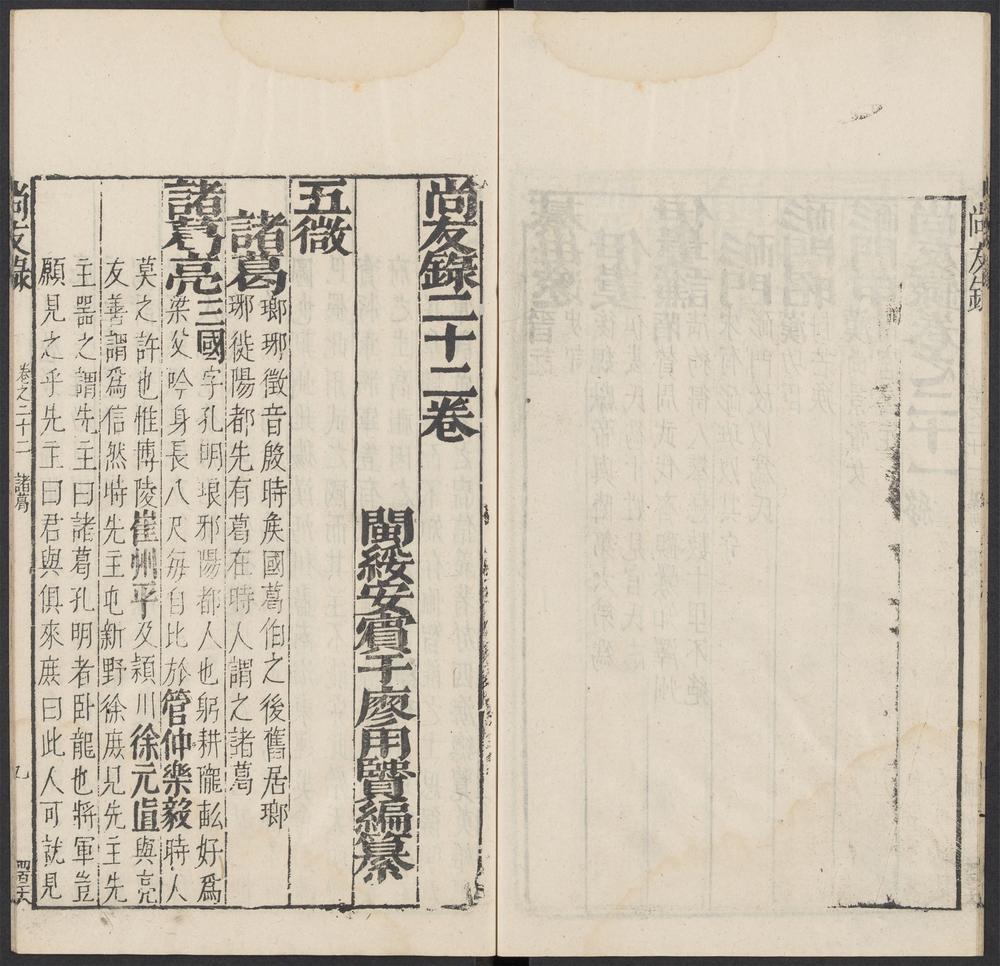 尚友錄
尚友錄二十二卷
閩綏安賓于廖用賢編纂
五微
諸葛
瑯琊徵音殷時矦國葛伯之後舊居瑯
琊徙陽都先有葛在時人謂之諸葛
諸葛亮三國字孔明琅邪陽都人也躬耕隴畝好爲
梁父吟身長八尺每自比於管仲樂毅時人
莫之許也惟博陵崔州平及潁川徐元直與亮
友善謂爲信然時先主屯新野徐庶見先主先
主器之謂先主曰諸葛孔明者卧龍也將軍豈
願見之乎先主曰君與俱來庶曰此人可就見
尚友錄
卷之二十二
諸葛
九